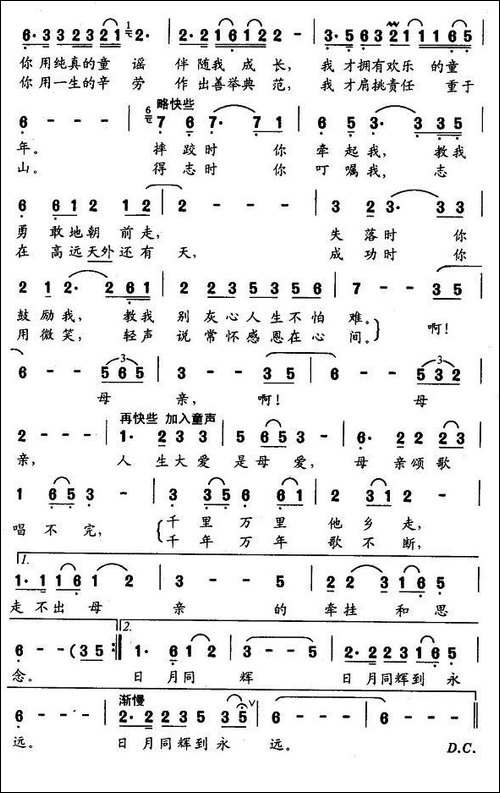 6·3 3 2 3 2 3 2 1 1 2· | 2·2 1 6 1 2 2 | 3·5 6 3 2 1 1 1 6 5 |
你用纯真的童 谣 伴随我 成 长, 我才拥有欢乐的童
你用一生的辛 劳 作出善举典 范, 我才肩挑责任 重于
略快些
6 - - | 6 7 6 7· 7 1 | 6 5 3· 3 3 5 |
年。 摔跤时 你 牵起我, 教我
山。 得志时 你 叮嘱我, 志
6 6 1 2 1 2 | 2 - - | 3 2 3· 3 3 |
勇 敢地朝 前走, 失落时 你
在 高远天外还有 天, 成功时 你
2 1 2· 2 6 1 | 2 2 3 5 3 5 6 | 7 - - 3 5 |
鼓励我, 教我 别灰心人生不怕 难。 啊!
用微笑, 轻声 说常怀感恩在心 间。
6 - - 5 6 5 | 3 - - 3 5 | 6 - - 5 3 2 |
母 亲, 啊! 母
再快些 加入童声
2 - - | 1· 2 2 3 | 5 6 5 3 | 6· 2 2 2 3 |
亲, 人 生大爱 是母 爱, 母 亲颂歌
1 6 5 3 - - | 3 3 5 6 6 1 | 2 3 1 2 - |
唱不完, 千里万里 他乡走,
千年万年 歌不断,
1.
1·1 1 6 1 2 | 3 - - 5 | 2 2 3 1 6 5 |
走不出母 亲 的 牵挂 和思
2.
6 - - (3 5) :‖ 1· 6 1 2 | 3 - - 5 | 2·2 2 3 1 6 5 |
念。 日 月同 辉 日月同辉到 永
渐慢
6 - - - | 2·2 2 3 5 3 5 V | 6 - - - | 6 - - - ‖
远。 日月同辉到永 远。 D.C.